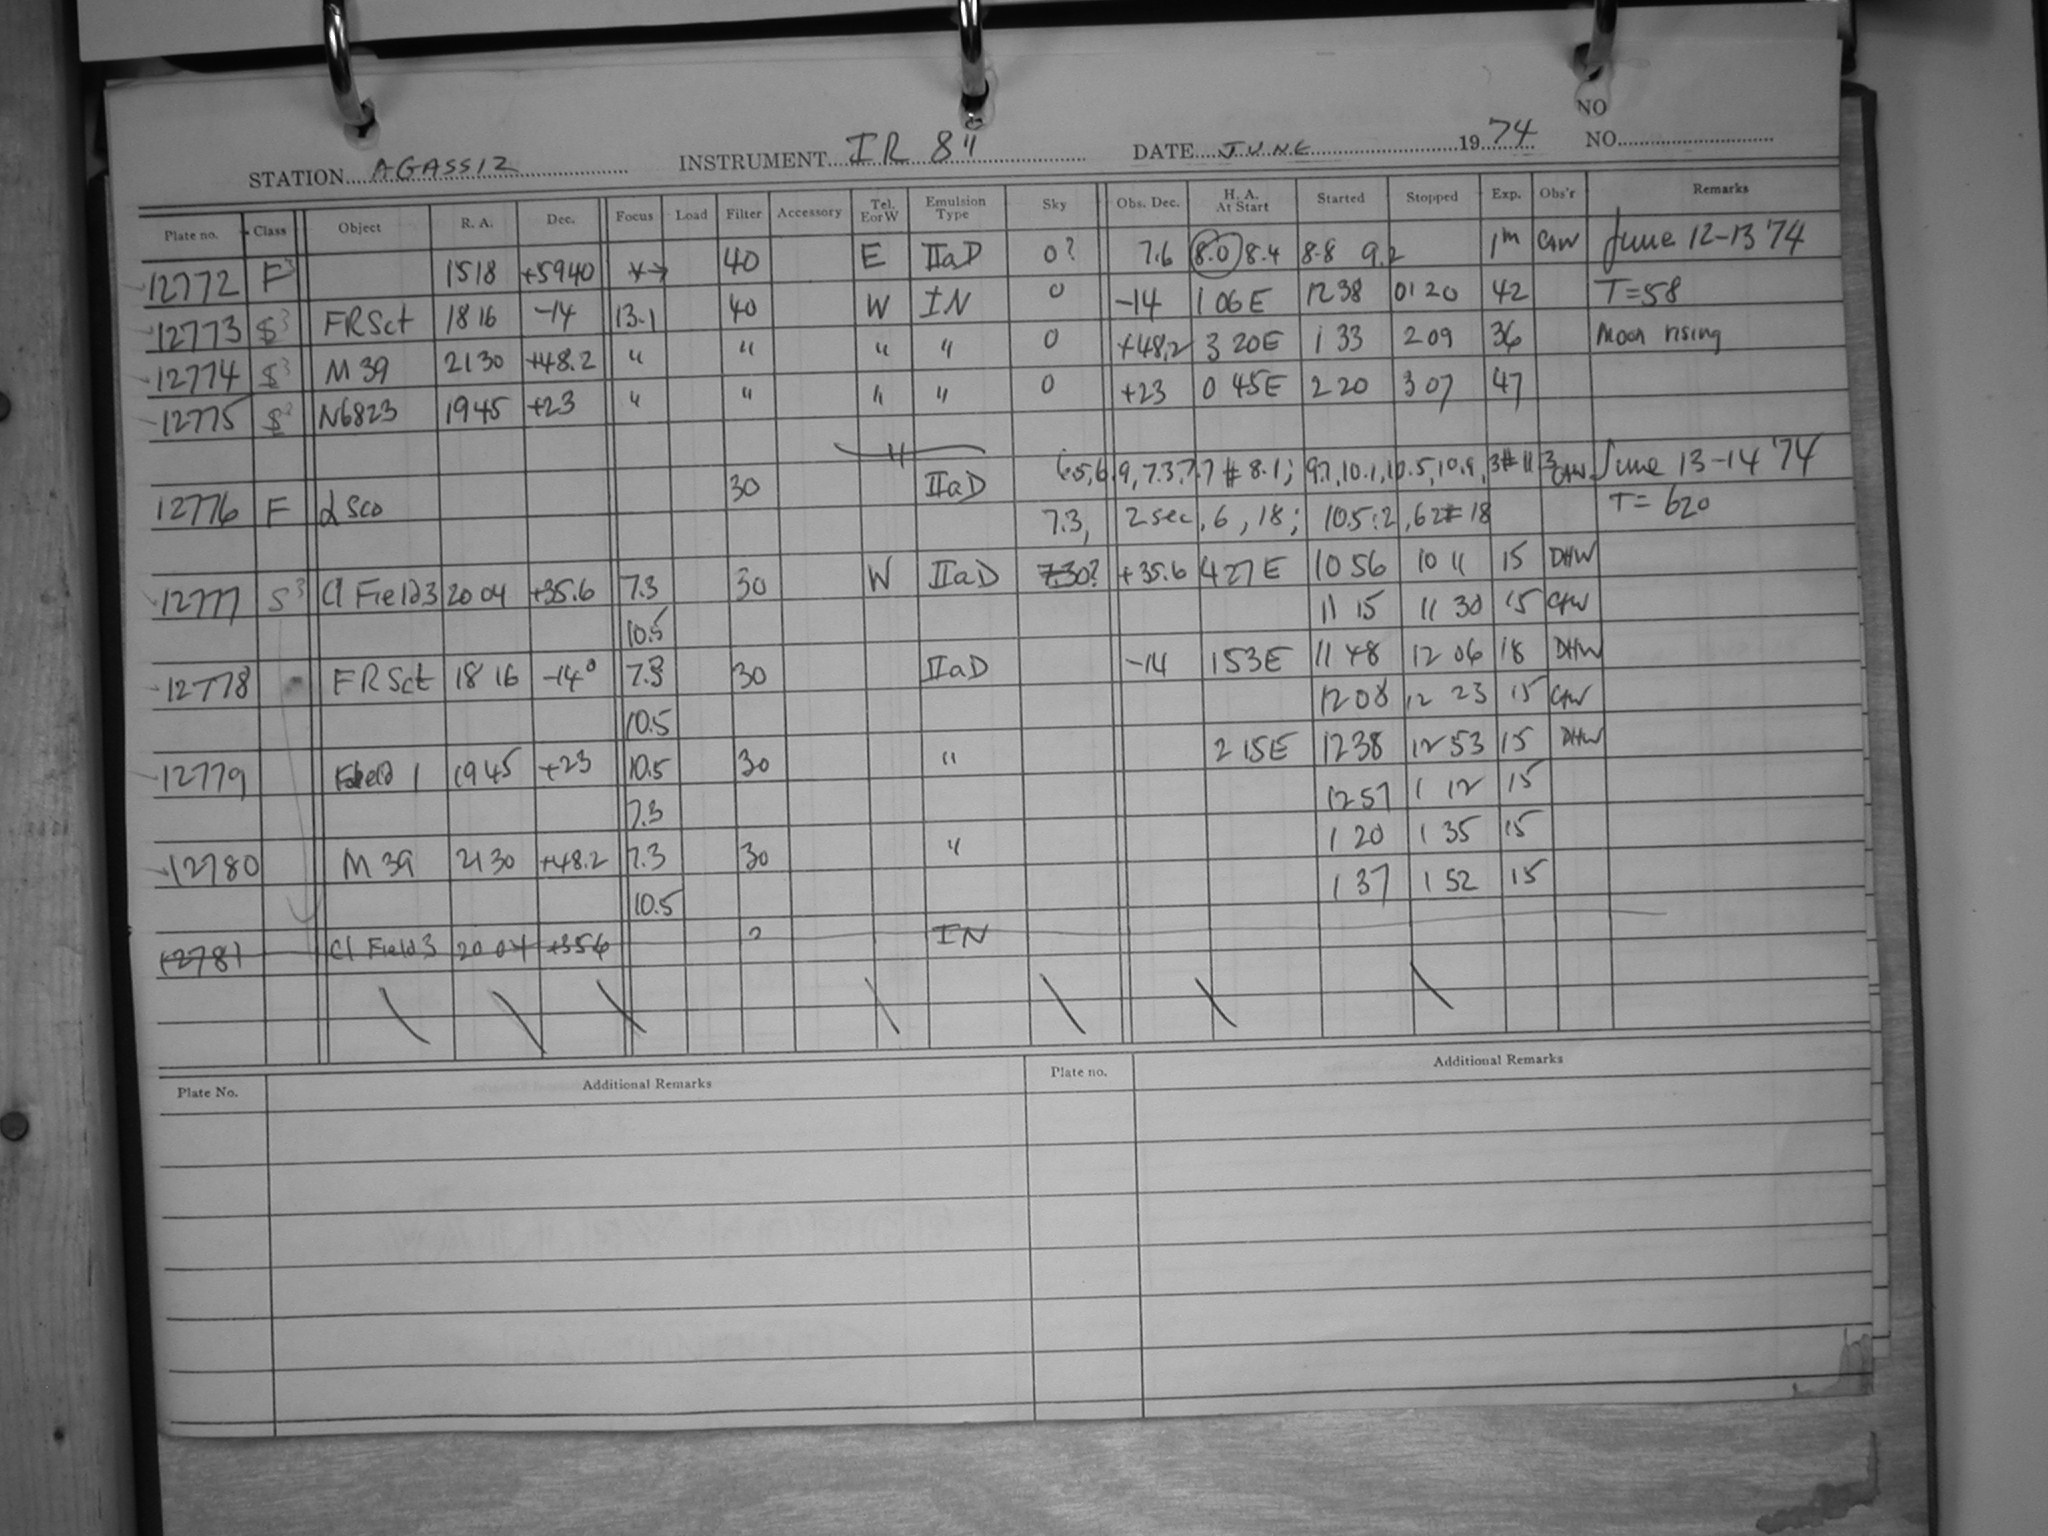 NO
STATION AGASSIZ INSTRUMENT IR 8" DATE JUNE 1974 NO.
Plate no. Class Object R. A. Dec. Focus Load Filter Accessory Tel. E or W Emulsion Type Sky Obs. Dec. H. A. At Start Started Stopped Exp. Obs'r Remarks
12772 F3 1518 +5940 40 E IIaD 0? 7.6 8.0 8.4 8.8 9.2 1m CAW June 12-13 '74
12773 S3 FRSct 18 16 -14 13.1 40 W IN 0 -14 1 06 E 1238 0120 42 T=58
12774 S3 M 39 21 30 +48.2 " " " " 0 +48.2 3 20E 1 33 2 09 36 Moon rising
12775 S3 N6823 1945 +23 " " " " 0 +23 0 45E 2 20 3 07 47
12776 F αSco 30 IIaD 6.5, 6.9, 7.3, 7.7 8.1; 9.7, 10.1, 10.5, 10.9, CAW June 13-14 '74
7.3, 2 sec, 6, 18; 10.5:2, 6 18 T= 620
12777 S3 Cl Field 3 20 04 +35.6 7.3 30 W IIaD 0? +35.6 4 27 E 10 56 10 11 15 DHW
10.5 11 15 11 30 15 CAW
12778 FRSct 18 16 -14° 7.3 30 IIaD -14 1 53E 11 48 12 06 18 DHW
10.5 12 08 12 23 15 CAW
12779 Field 1 1945 +23 10.5 30 " 2 15E 1238 12 53 15 DHW
7.3 1257 1 12 15
12780 M 39 21 30 +48.2 7.3 30 " 1 20 1 35 15
10.5 1 37 1 52 15
12781 Cl Field 3 20 04 +35.6 IN
Plate No. Additional Remarks Plate no. Additional Remarks